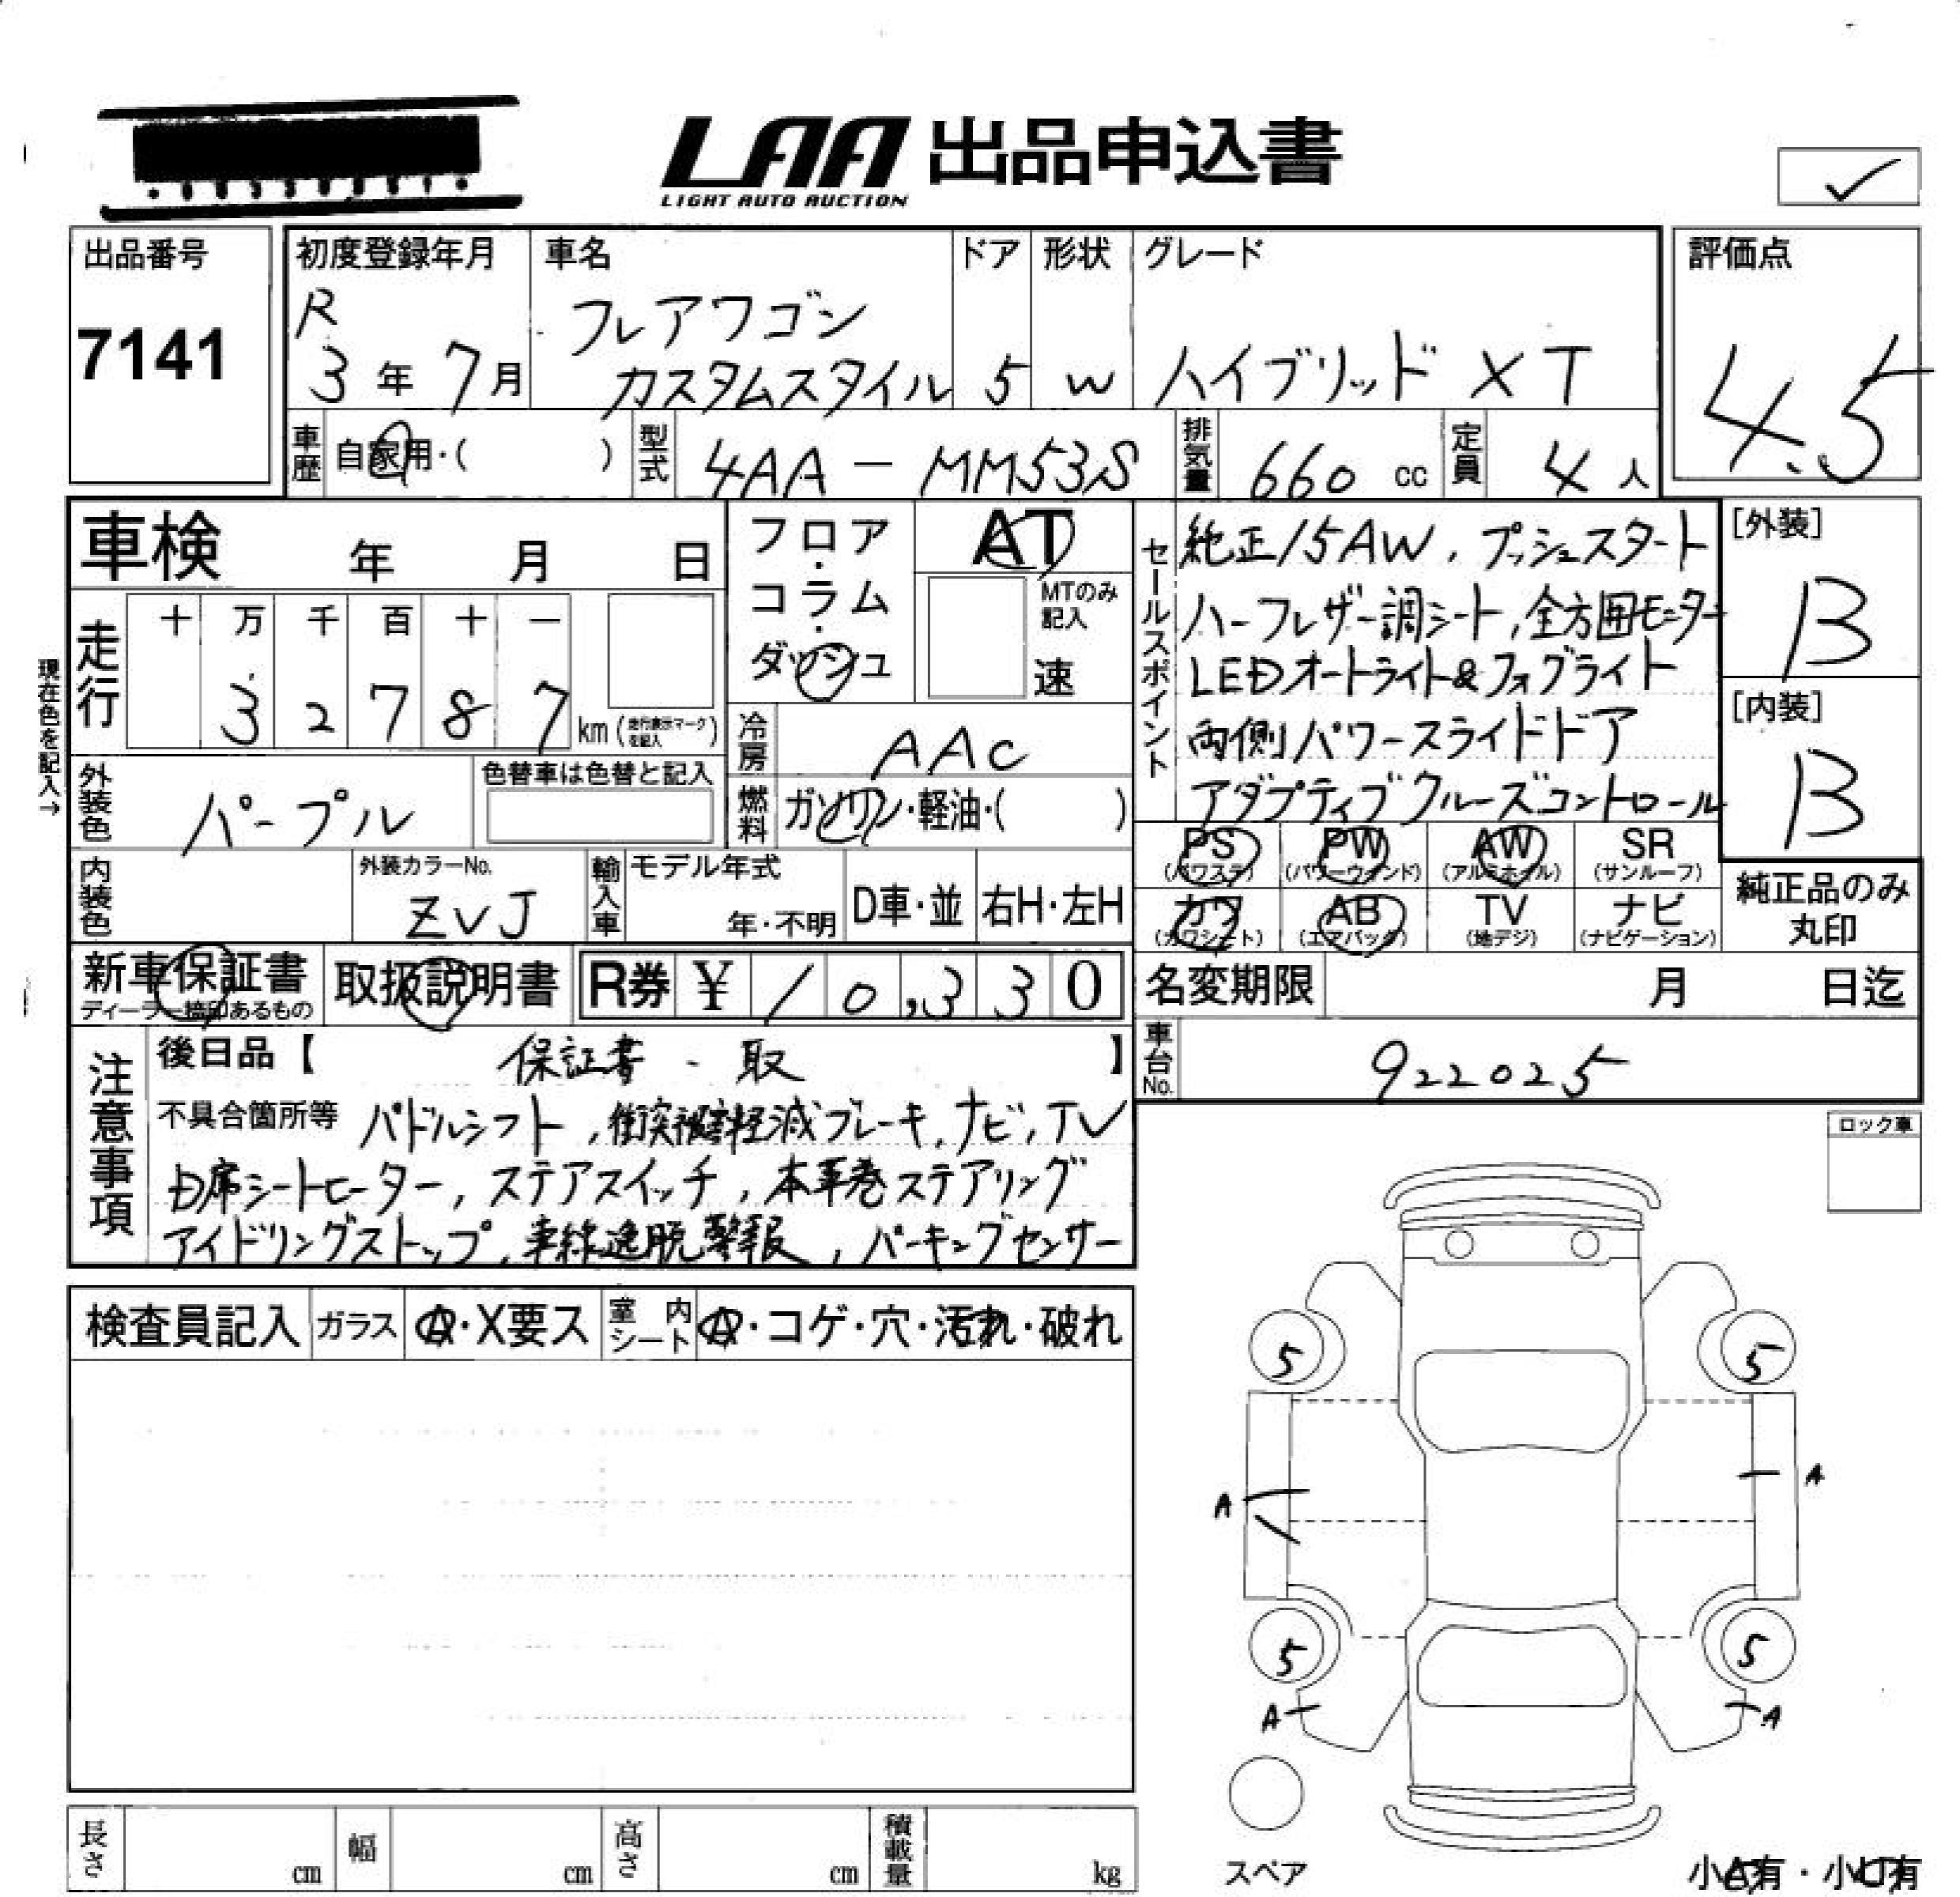 LAA 出品申込書
LIGHT AUTO AUCTION
出品番号
7141
初度登録年月
R
3年 7月
車名
フレアワゴン
カスタムスタイル
ドア
5
形状
W
グレード
ハイブリッド XT
評価点
4.5
車歴 自家用・( )
型式 4AA-MM53S
排気量 660 cc
定員 4 人
車検 年 月 日
走行
十 万 千 百 十 一
3 2 7 8 7 km (走行表示マークを記入)
現在色を記入→
フロア・コラム・ダッシュ
AT
MTのみ記入
速
冷房 AAC
燃料 ガソリン・軽油・( )
外装色 パープル
色替車は色替と記入
内装色
外装カラーNo.
ZVJ
輸入車
モデル年式
年・不明
D車・並
右H・左H
セールスポイント
純正15AW, プッシュスタート
ハーフレザー調シート, 全方囲モニター
LEDオートライト&フォグライト
両側パワースライドドア
アダプティブクルーズコントロール
[外装]
B
[内装]
B
PS (パワステ) PW (パワーウインド) AW (アルミホイル) SR (サンルーフ)
カワ (カワシート) AB (エアバック) TV (地デジ) ナビ (ナビゲーション)
純正品のみ
丸印
新車保証書
ディーラー捺印あるもの
取扱説明書
R券 ¥ 10,330
名変期限 月 日迄
車台No. 922025
注意事項
後日品【 保証書、取 】
不具合箇所等 パドルシフト, 衝突被害軽減ブレーキ, ナビ, TV
D席シートヒーター, ステアスイッチ, 本革巻ステアリング
アイドリングストップ, 車線逸脱警報, パーキングセンサー
ロック車
検査員記入 ガラス A・X要ス 室内シート A・コゲ・穴・汚れ・破れ
5 5
A A
5 5
A A
スペア
小A有・小U有
長さ cm 幅 cm 高さ cm 積載量 kg